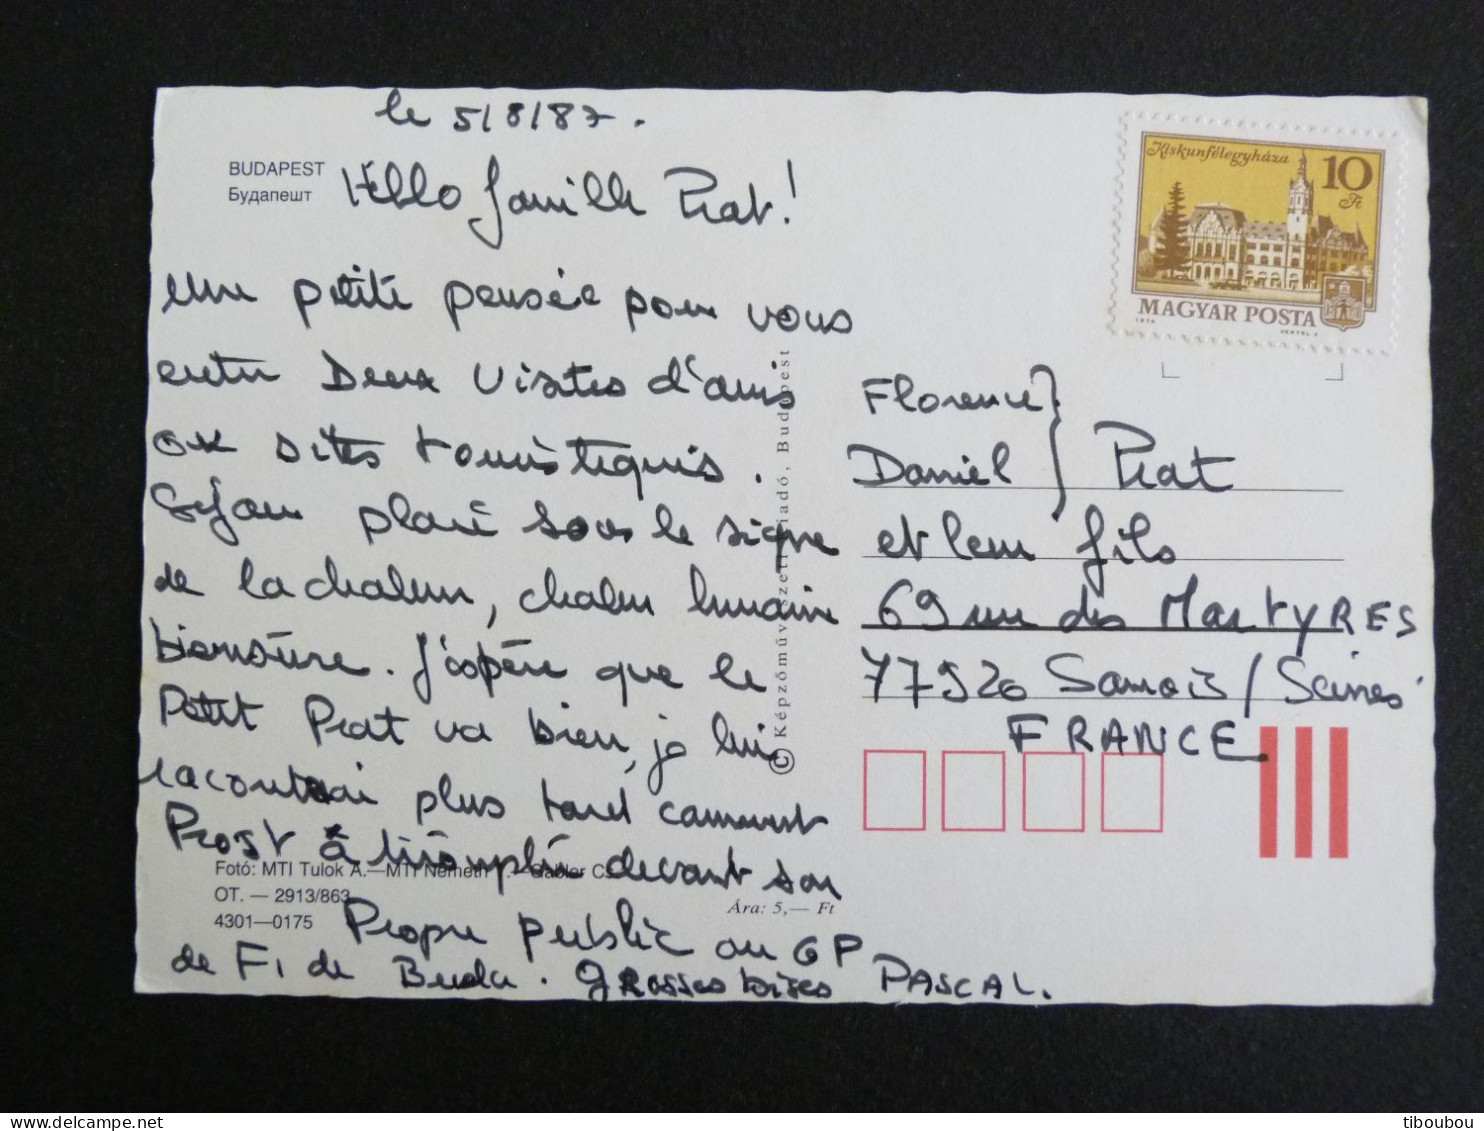 le 5/8/87.
BUDAPEST
Будапешт
Hello famille Prat!
Une petite pensée pour vous
entre Deux visites d'amis
ou sites touristiques.
Séjour placé sous le signe
de la chaleur, chaleur humaine
biensûre. J'éspère que le
Petit Prat va bien, je lui
raconterai plus tard comment
Prost à triomphé devant son
Propre public au GP
de F1 de Buda. Grosses bises PASCAL.
Fotó: MTI Tulok A.—MTI Németh
OT. — 2913/863
4301—0175
Ára: 5,— Ft
© Képzőművészeti Kiadó, Budapest
Kiskunfélegyháza
10
Ft
MAGYAR POSTA
Florence
Daniel } Prat
et leur fils
69 rue des MartyRES
77920 Samois/Seine
FRANCE
tiboubou